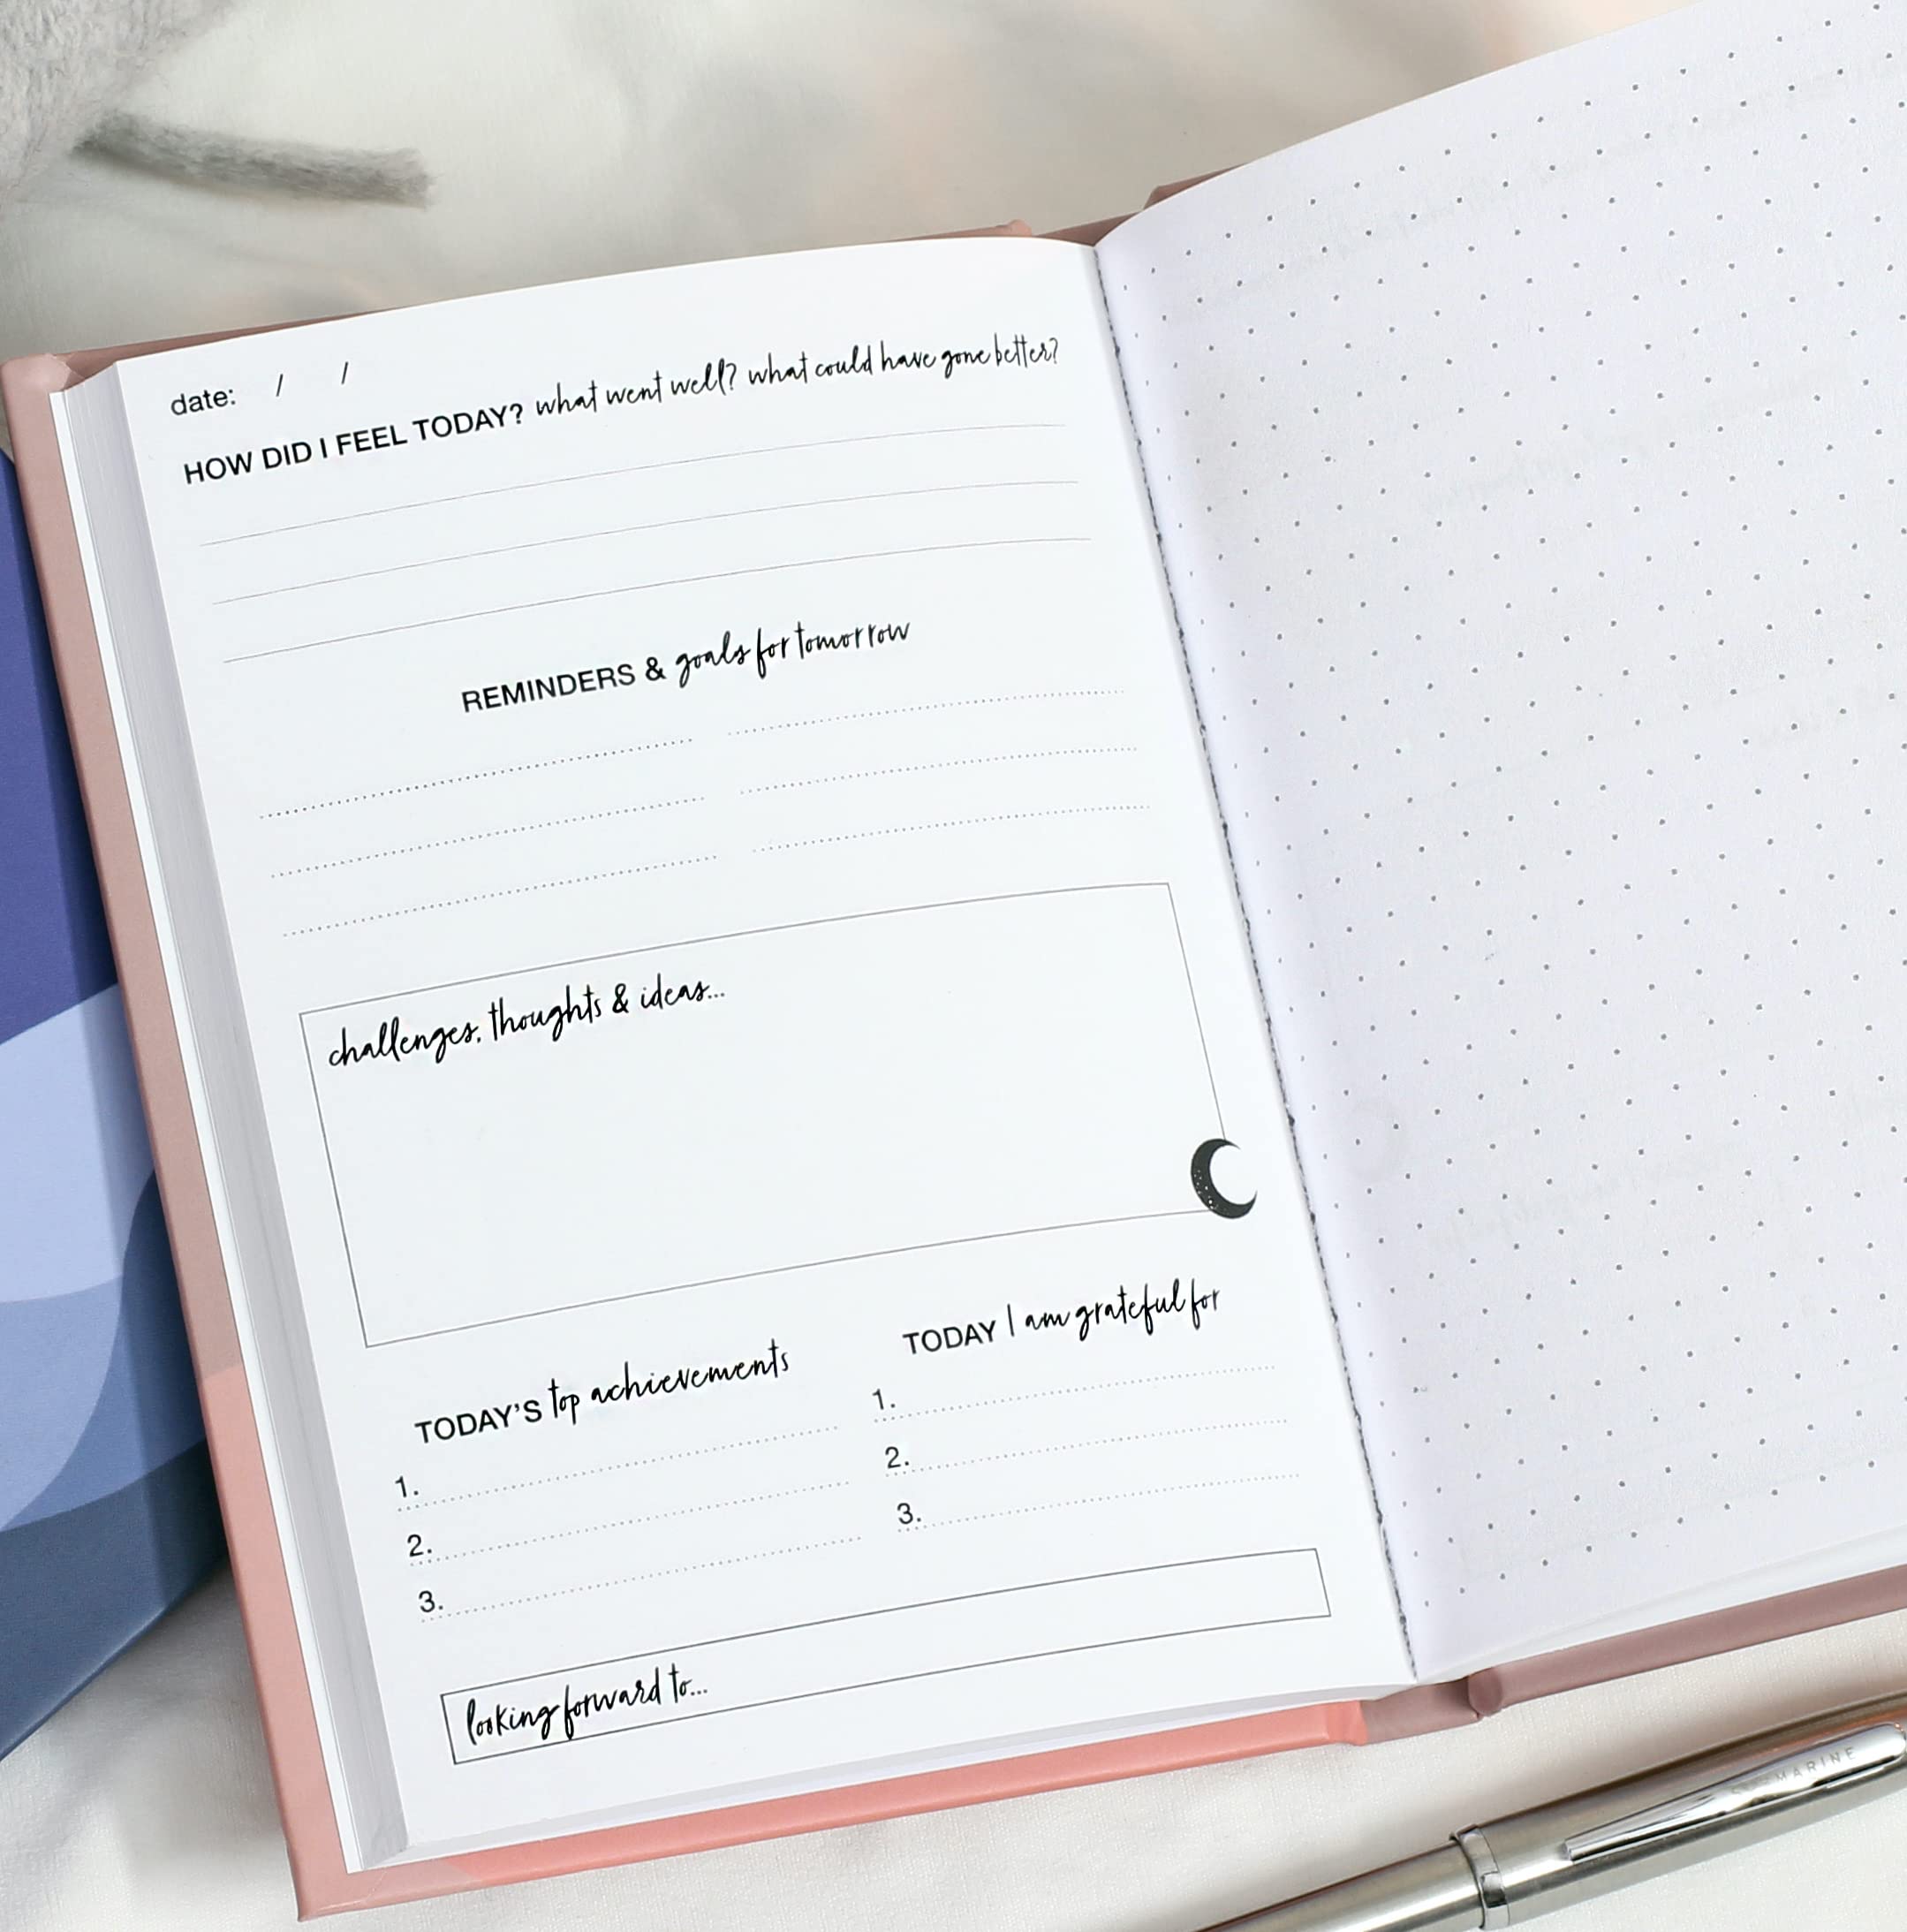 date: / /
HOW DID I FEEL TODAY? what went well? what could have gone better?
REMINDERS & goals for tomorrow
challenges, thoughts & ideas...
TODAY'S top achievements
1.
2.
3.
TODAY I am grateful for
1.
2.
3.
looking forward to...